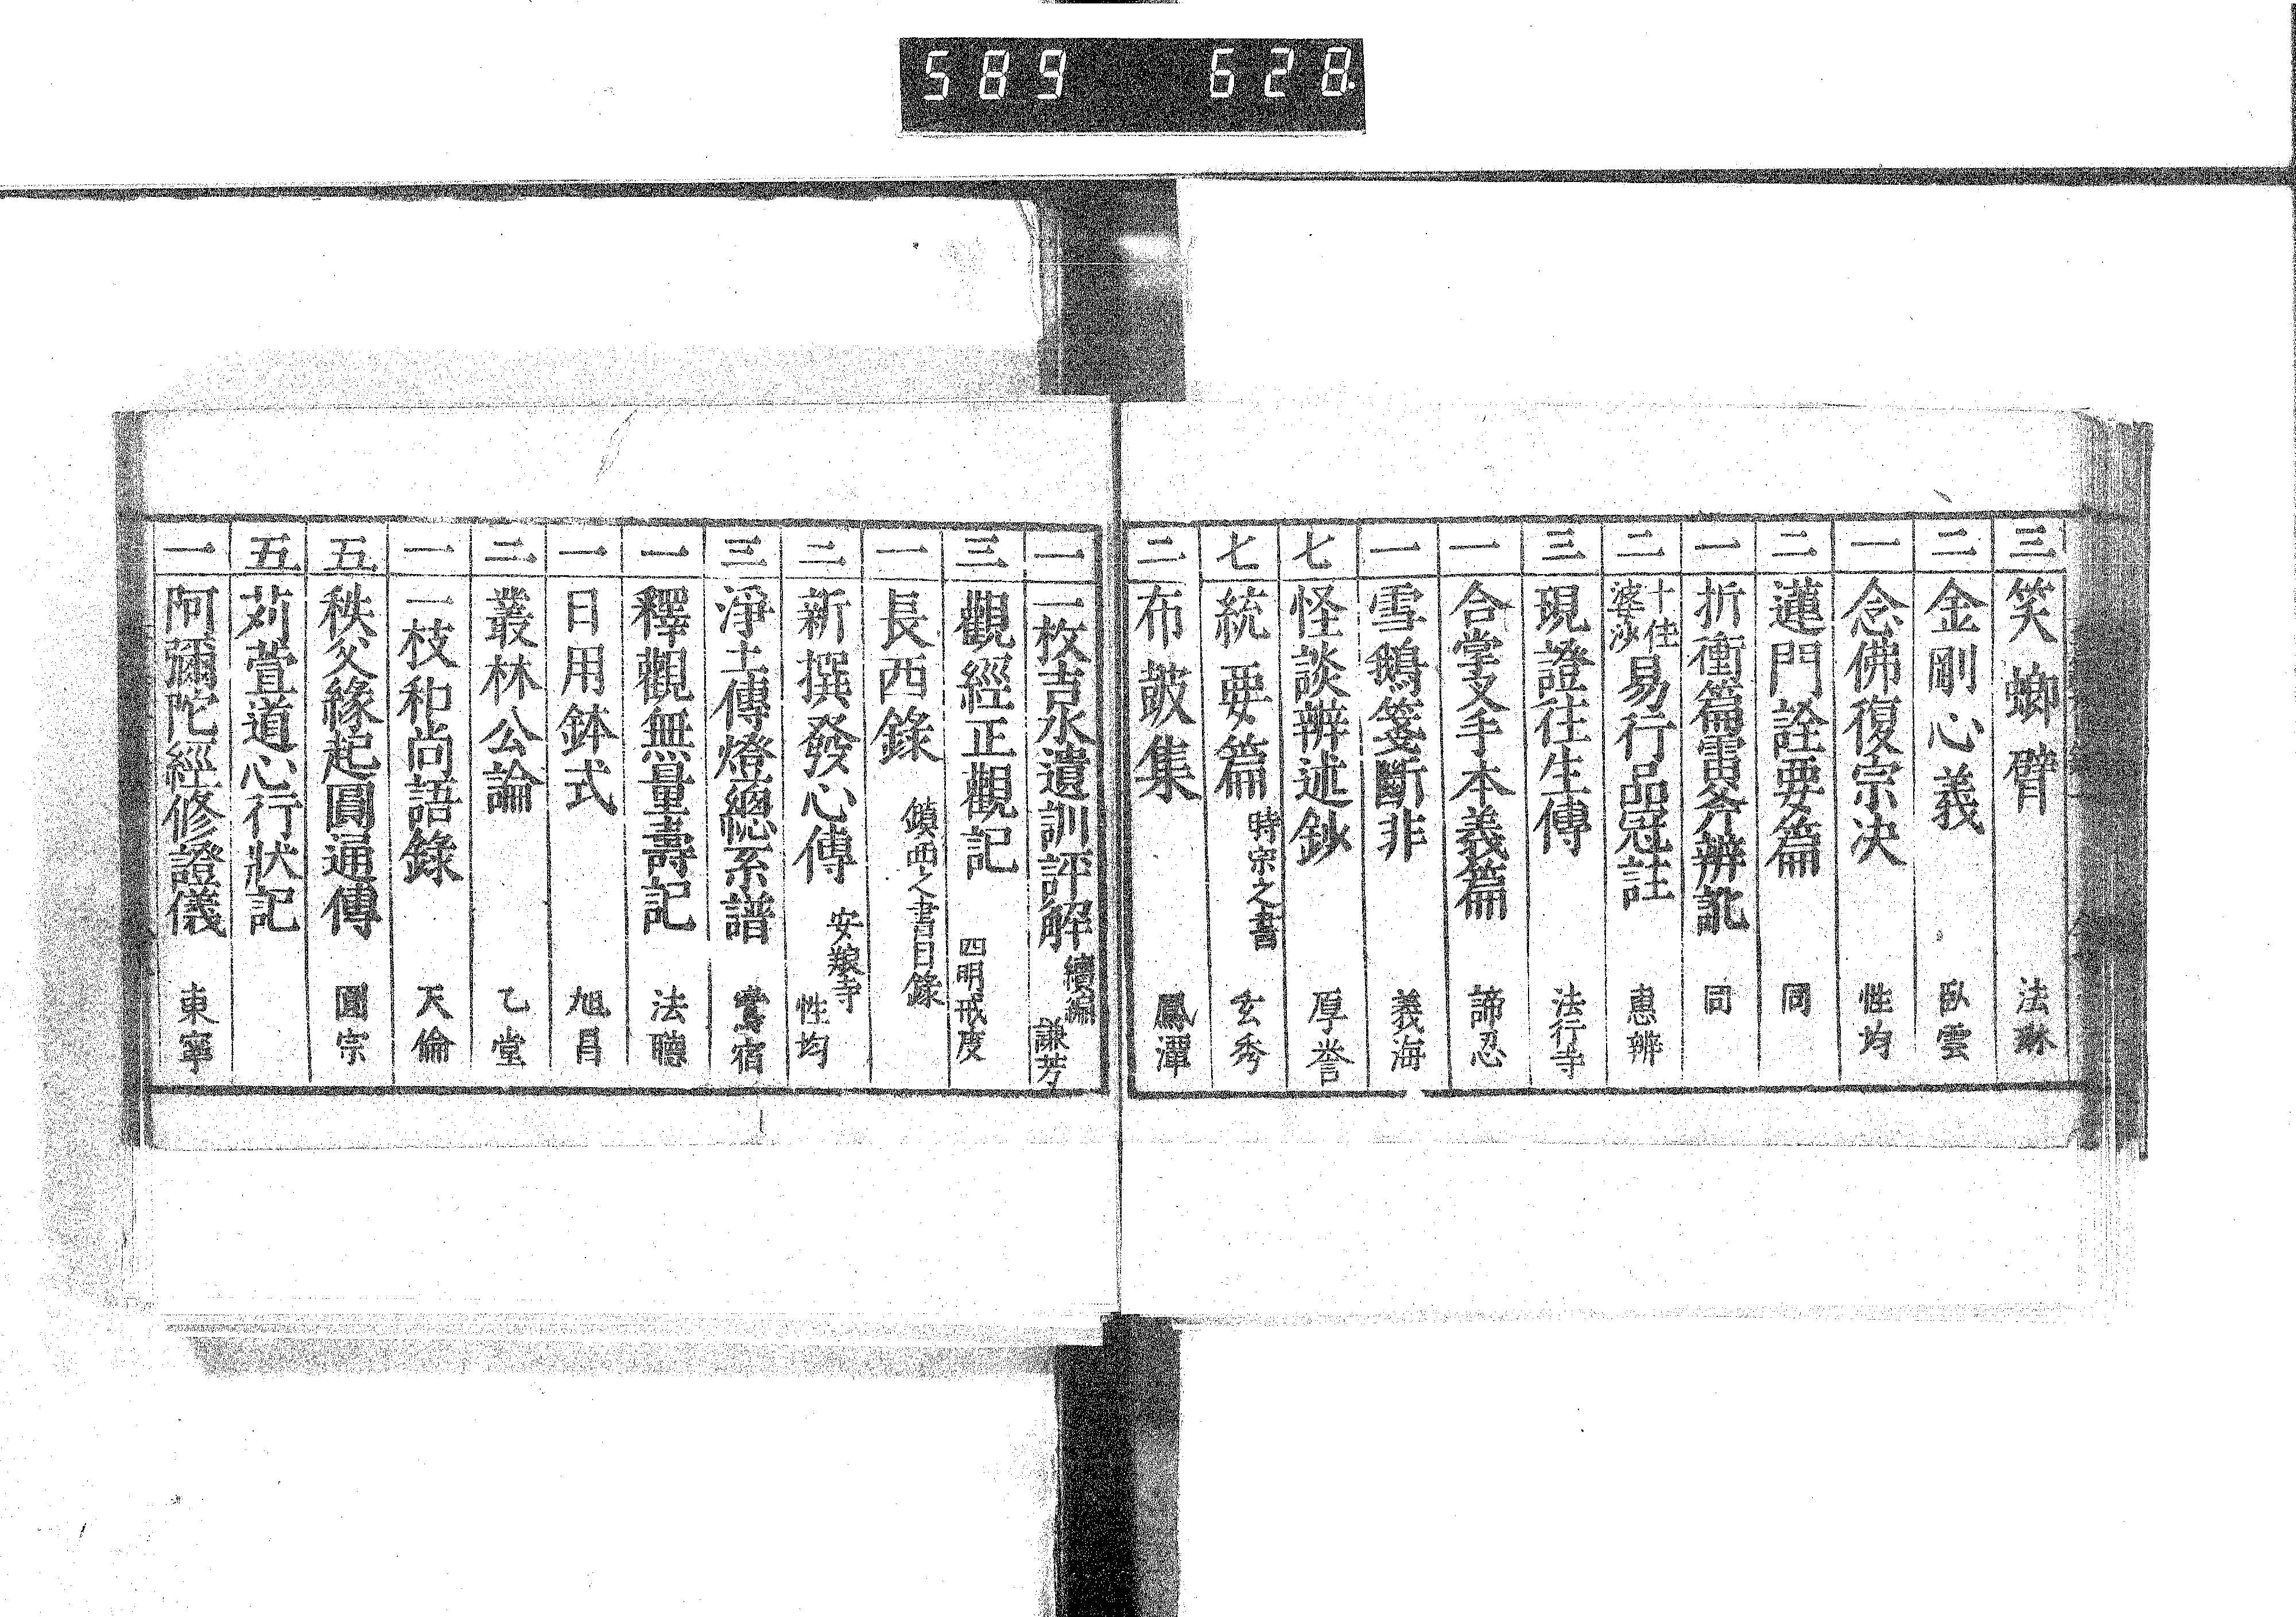 589 628
三 笑螂臂 法琳
二 金剛心義 臥雲
一 念佛復宗决 性均
二 蓮門詮要篇 同
一 折衝篇雷斧辨訛 同
二 十住婆沙易行品冠註 惠辨
三 現證往生傳 法行寺
一 合掌叉手本義篇 諦忍
一 雪鵝箋斷非 義海
七 怪談辨述鈔 厚誉
七 統要篇 時宗之書 玄秀
二 布鼓集 鳳潭
一 一枚吉水遺訓評解 續編 謙芳
三 觀經正觀記 四明戒度
一 長西錄 鎮西之書目錄
二 新撰發心傳 安養寺 性均
三 淨土傳燈總系譜 鸞宿
一 釋觀無量壽記 法聰
一 日用鉢式 旭昌
二 叢林公論 乙堂
一 一枝和尚語錄 天倫
五 秩父緣起圓通傳 圓宗
五 苅萱道心行狀記
一 阿彌陀經修證儀 東寧